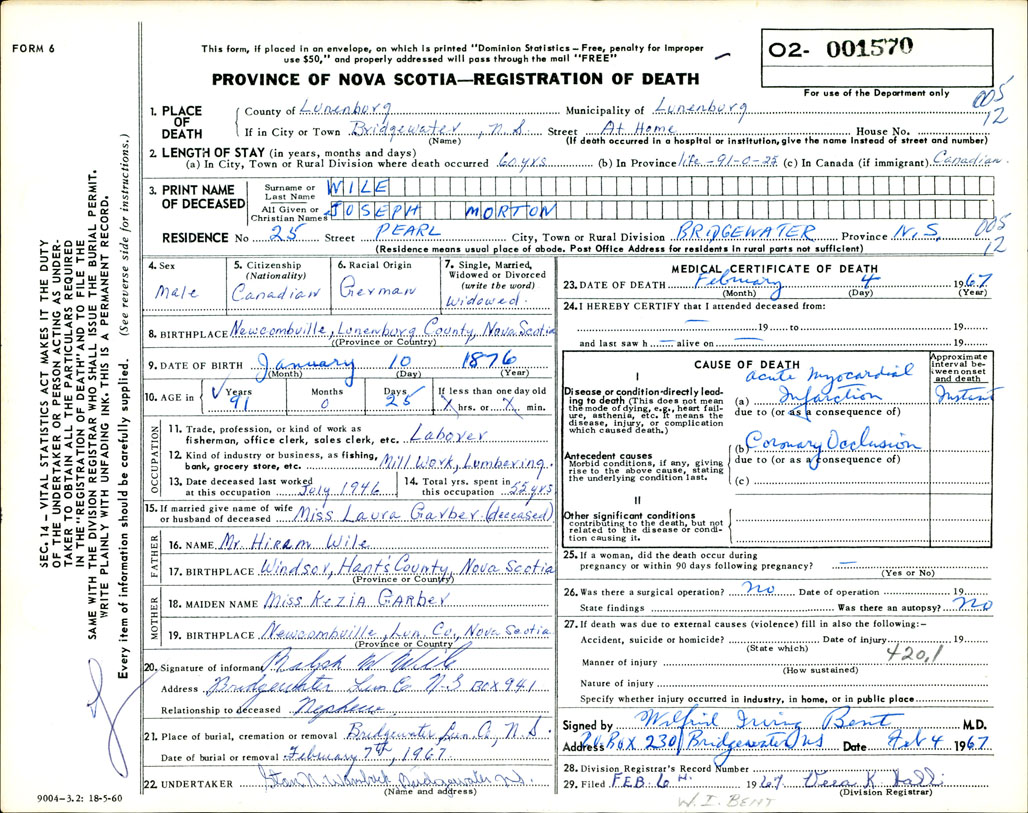 FORM 6
This form, if placed in an envelope, on which is printed "Dominion Statistics – Free, penalty for improper
use $50," and properly addressed will pass through the mail "FREE"
PROVINCE OF NOVA SCOTIA—REGISTRATION OF DEATH
O2- 001570
For use of the Department only
005
12
1. PLACE OF DEATH
County of Lunenburg Municipality of Lunenburg
If in City or Town Bridgewater, N.S. Street At Home House No.
(Name) (If death occurred in a hospital or institution, give the name instead of street and number)
2. LENGTH OF STAY (in years, months and days)
(a) In City, Town or Rural Division where death occurred 60 yrs (b) In Province life - 91-0-25 (c) In Canada (if immigrant) Canadian
3. PRINT NAME OF DECEASED
Surname or Last Name WILE
All Given or Christian Names JOSEPH MORTON
RESIDENCE No 25 Street PEARL City, Town or Rural Division BRIDGEWATER Province N.S.
005
12
(Residence means usual place of abode. Post Office Address for residents in rural parts not sufficient)
4. Sex
Male
5. Citizenship
(Nationality)
Canadian
6. Racial Origin
German
7. Single, Married,
Widowed or Divorced
(write the word)
Widowed
8. BIRTHPLACE Newcombville, Lunenburg County, Nova Scotia
((Province or Country)
9. DATE OF BIRTH January 10 1876
(Month) (Day) (Year)
10. AGE in Years 91 Months 0 Days 25 If less than one day old
X hrs. or X min.
OCCUPATION
11. Trade, profession, or kind of work as
fisherman, office clerk, sales clerk, etc. Laborer
12. Kind of industry or business, as fishing,
bank, grocery store, etc. Mill Work, Lumbering.
13. Date deceased last worked
at this occupation July 1946
14. Total yrs. spent in
this occupation 55 yrs
15. If married give name of wife
or husband of deceased Miss Laura Garber (deceased)
FATHER
16. NAME Mr. Hiram Wile
17. BIRTHPLACE Windsor, Hants County, Nova Scotia
(Province or Country)
MOTHER
18. MAIDEN NAME Miss Kezia GARber
19. BIRTHPLACE Newcombville, Lun. Co., Nova Scotia
(Province or Country)
20. Signature of informant Ralph W. Wile
Address Bridgewater Lun Co N.S Box 941
Relationship to deceased Nephew
21. Place of burial, cremation or removal Bridgewater Lun. Co, N.S.
Date of burial or removal February 7th, 1967
22. UNDERTAKER Bridgewater N.S.
(Name and address)
9004-3.2: 18-5-60
MEDICAL CERTIFICATE OF DEATH
23. DATE OF DEATH February 4 1967
(Month) (Day) (Year)
24. I HEREBY CERTIFY that I attended deceased from:
— 19 to 19
and last saw h alive on — 19
CAUSE OF DEATH
Approximate
interval be-
tween onset
and death
I
Disease or condition directly lead-
ing to death (This does not mean
the mode of dying, e.g., heart fail-
ure, asthenia, etc. It means the
disease, injury, or complication
which caused death.)
acute Myocardial
(a) Infarction Instant
due to (or as a consequence of)
Antecedent causes
Morbid conditions, if any, giving
rise to the above cause, stating
the underlying condition last.
(b) Coronary Occlusion
due to (or as a consequence of)
(c)
II
Other significant conditions
contributing to the death, but not
related to the disease or condi-
tion causing it.
25. If a woman, did the death occur during
pregnancy or within 90 days following pregnancy? —
(Yes or No)
26. Was there a surgical operation? No Date of operation 19
State findings Was there an autopsy? No
27. If death was due to external causes (violence) fill in also the following:–
Accident, suicide or homicide? Date of injury 19
(State which)
420.1
Manner of injury
(How sustained)
Nature of injury
Specify whether injury occurred in industry, in home, or in public place
Signed by Wilfrid Irving Bent M.D.
Address PO Box 230 Bridgewater NS Date Feb 4 1967
28. Division Registrar's Record Number
29. Filed FEB. 6 1967 Vera K.
(Division Registrar)
W. I. BENT
SEC. 14 – VITAL STATISTICS ACT MAKES IT THE DUTY
OF THE UNDERTAKER OR PERSON ACTING AS UNDER-
TAKER TO OBTAIN ALL THE PARTICULARS REQUIRED
IN THE "REGISTRATION OF DEATH" AND TO FILE THE
SAME WITH THE DIVISION REGISTRAR WHO SHALL ISSUE THE BURIAL PERMIT.
WRITE PLAINLY WITH UNFADING INK. THIS IS A PERMANENT RECORD.
Every item of information should be carefully supplied. (See reverse side for instructions.)